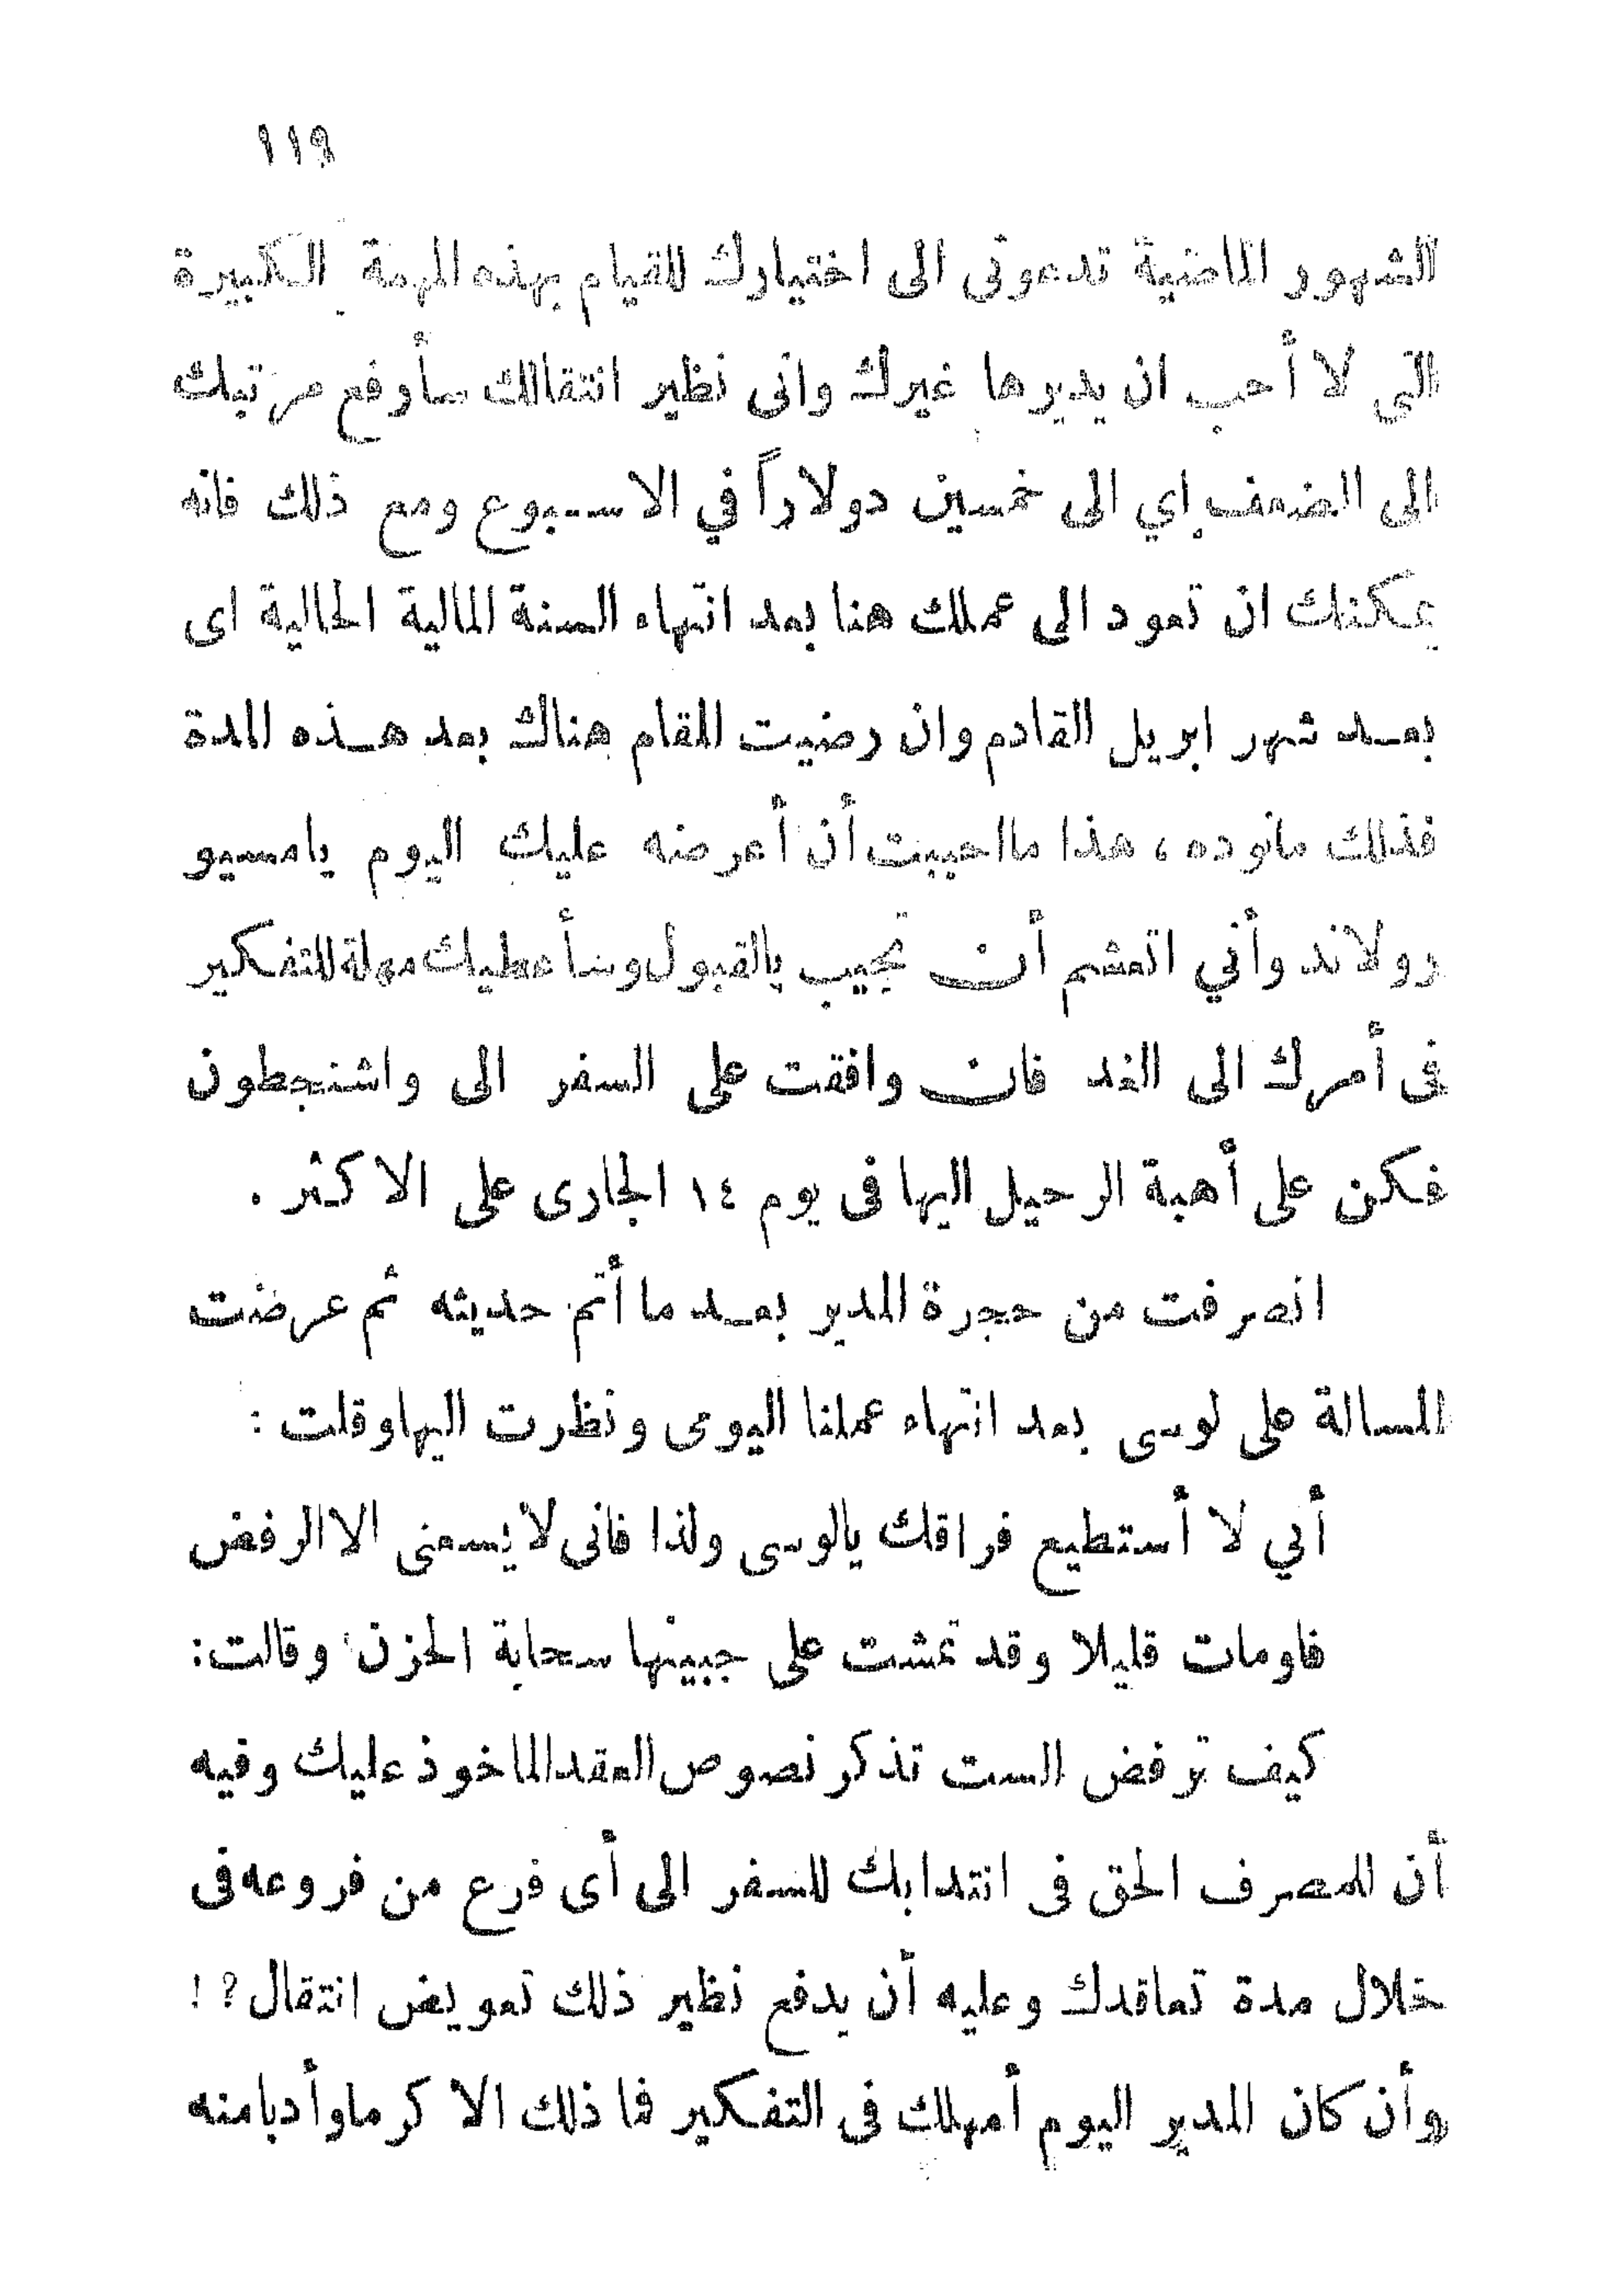 ١١٩
الشهور الماضية تدعونى الى اختيارك للقيام بهذه المهمة الكبيرة
التى لا أحب ان يديرها غيرك وانى نظير انتقالك سأرفع مرتبك
الى الضعف إي الى خمسين دولاراً في الاسبوع ومع ذلك فانه
يمكنك ان تعود الى عملك هنا بعد انتهاء السنة المالية الحالية اى
بعد شهر ابريل القادم وان رضيت المقام هناك بعد هذه المدة
فذلك مانوده ، هذا مااحببت أن أعرضه عليك اليوم يامسيو
رولاند وأني اتعشم أن تجيب بالقبول وسأعطيك مهلة للتفكير
فى أمرك الى الغد فان وافقت على السفر الى واشنجطون
فكن على أهبة الرحيل اليها فى يوم ١٤ الجارى على الاكثر .
انصرفت من حجرة المدير بعد ما أتم حديثه ثم عرضت
المسالة على لوسى بعد انتهاء عملنا اليومى ونظرت اليها وقلت :
أني لا أستطيع فراقك يالوسى ولذا فانى لا يسعنى الا الرفض
فاومات قليلا وقد تمشت على جبينها سحابة الحزن وقالت :
كيف ترفض الست تذكر نصوص العقد الماخوذ عليك وفيه
أن للمصرف الحق فى انتدابك للسفر الى أى فرع من فروعه فى
خلال مدة تعاقدك وعليه أن يدفع نظير ذلك تعويض انتقال ? !
وأن كان المدير اليوم أمهلك فى التفكير فما ذلك الا كرما وأدبا منه